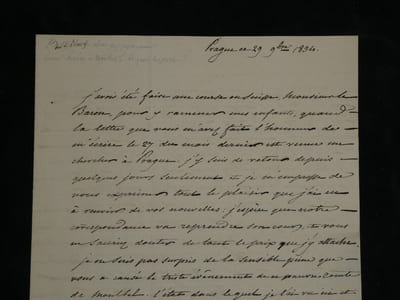 Prague ce 29 9bre 1834.
j'avois été faire une course en Suisse, Monsieur le
Baron, pour y ramener mes enfants, quand
la lettre que vous m'avez fait l'honneur de
m'écrire le 27 du mois dernier est venue me
chercher à Prague. j'y suis de retour depuis
quelques jours seulement et je m'empresse de
vous exprimer tout le plaisir que j'ai eu
à recevoir de vos nouvelles. j'espère que notre
correspondance va reprendre son cours, et vous
ne sauriez douter de tout le prix que j'y attache.
je ne suis pas surpris de la sensible peine que
vous a causé le triste événement de ce pauvre comte
de Montbel. l'état dans lequel je l'ai vu est